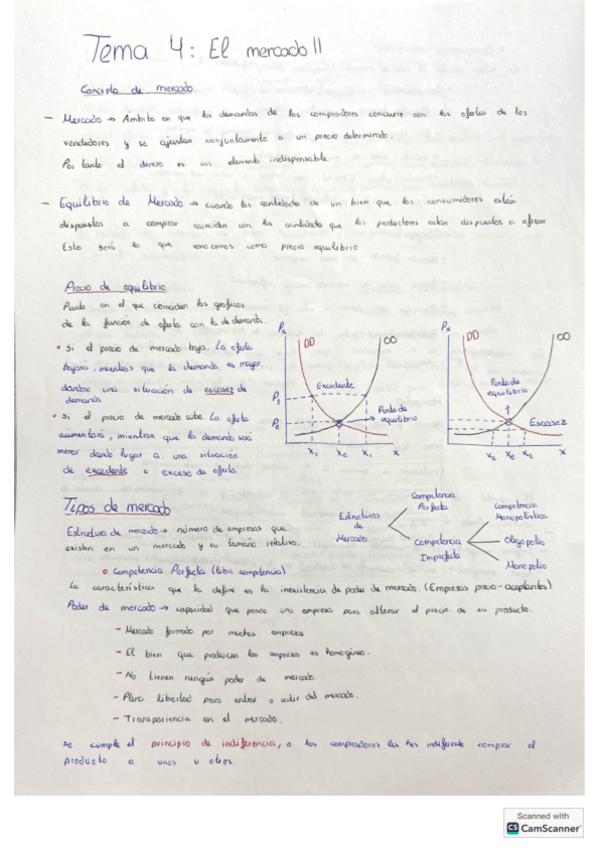 Tema 4: El mercado II
Concepto de mercado
- Mercado → Ámbito en que las demandas de los compradores concurre con las ofertas de los
vendedores y se ajustan conjuntamente a un precio determinado.
Por tanto el dinero es un elemento indispensable
- Equilibrio de Mercado → cuando las cantidades de un bien que los consumidores están
dispuestos a comprar coinciden con las cantidades que los productores están dispuestos a ofrecer
Esto será lo que conocemos como precio equilibrio
Precio de equilibrio
Punto en el que coinciden las gráficas
de la función de oferta con la de demanda.
• Si el precio de mercado baja. La oferta
bajara, mientras que la demanda es mayor,
dandose una situación de escasez de
demanda
• Si el precio de mercado sube. La oferta
aumentará, mientras que la demanda será
menor dando lugar a una situación
de excedente o exceso de oferta
Px
DD
OO
Excedente
P1
Pe
Punto de
equilibrio
X1 Xe X1 X
Px
DD
OO
Punto de
equilibrio
Escasez
X2 Xe X2 X
Tipos de mercado
Estructura de mercado → número de empresas que
existen en un mercado y su tamaño relativo.
Estructuras
de
Mercado
Competencia
Perfecta
Competencia
Imperfecta
Competencia
Monopolística
Oligopolio
Monopolio
o Competencia Perfecta (libre competencia)
La característica que la define es la inexistencia de poder de mercado. (Empresas precio-aceptantes)
Poder de mercado → capacidad que posee una empresa para alterar el precio de su producto.
- Mercado formado por muchas empresas
- El bien que producen las empresas es homogéneo.
- No tienen ningún poder de mercado.
- Plena libertad para entrar o salir del mercado.
- Transparencia en el mercado.
se cumple el principio de indiferencia, a los compradores les indiferente comprar el
producto a unos u otros.
Scanned with
CS CamScanner